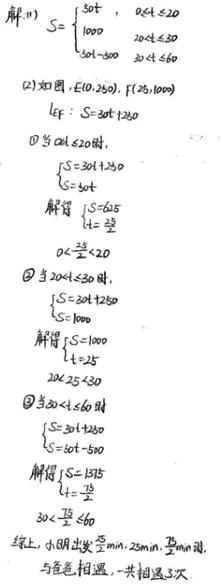 解:(1)
S = { 50t , 0≤t≤20
1000 20<t≤30
50t-500 30<t≤60
(2)如图,E(0,250),F(25,1000)
lEF: S=30t+250
①当0≤t≤20时,
{ S=30t+250
S=50t
解得 { S=625
t=25/2
0<25/2<20
②当20<t≤30时,
{ S=30t+250
S=1000
解得 { S=1000
t=25
20<25<30
③当30<t≤60时
{ S=30t+250
S=50t-500
解得 { S=1375
t=75/2
30<75/2≤60
综上,小明出发25/2min,25min,75/2min时,
与爸爸相遇,一共相遇3次